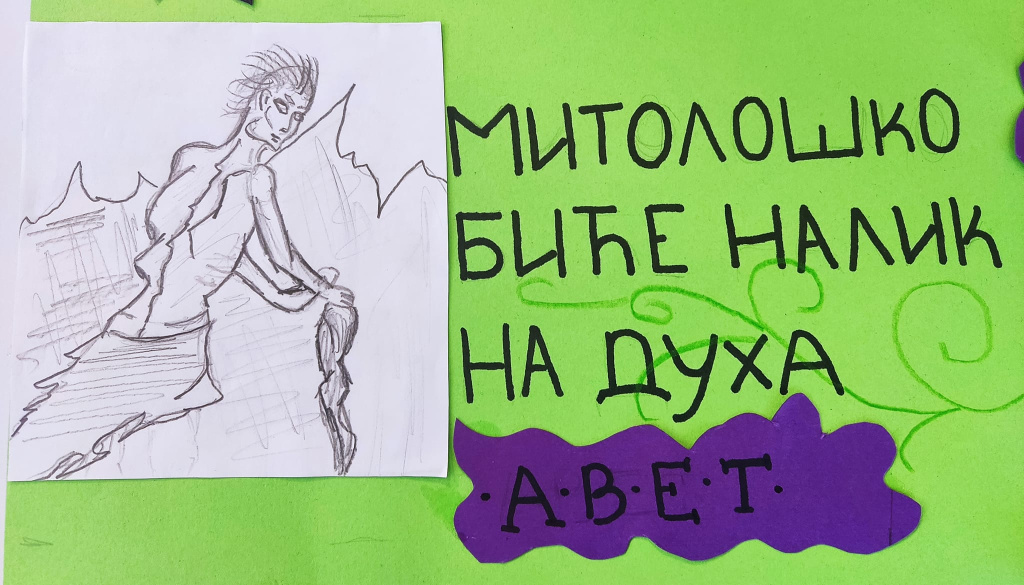 МИТОЛОШКО
БИЋЕ НАЛИК
НА ДУХА
·А·В·Е·Т·